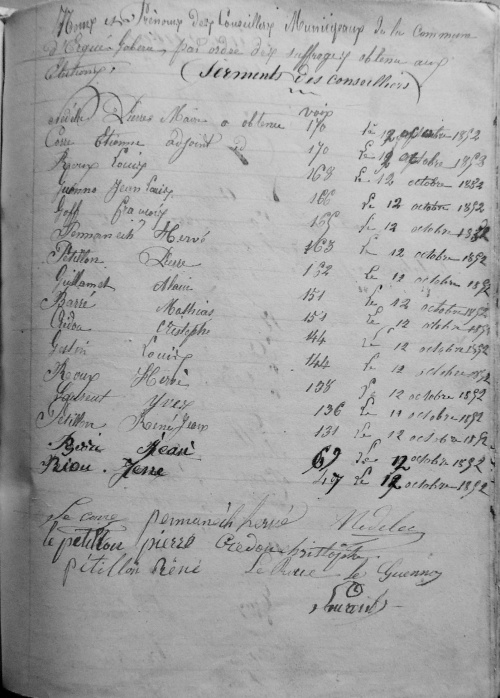 Noms et Prénoms des Conseillers Municipaux de la Commune
d'Ergué-Gabéric, par ordre des suffrages obtenu aux
élections.
(Serments des conseillers)
voix
Pierre Maire a obtenu 170 Le 12 octobre 1852
Corre Etienne adjoint id 170 Le 12 octobre 1852
Roux Louis 168 Le 12 octobre 1852
Jean Louis 166 Le 12 octobre 1852
Goff François Le 12 octobre 1852
Hervé 163 Le 12 octobre 1852
Pétillon Pierre Le 12 octobre 1852
Guillamet Alain 151 Le 12 octobre 1852
Barré Mathias 151 Le 12 octobre 1852
Cristophe 144 Le 12 octobre 1852
Louis 144 Le 12 octobre 1852
Roux Hervé 138 Le 12 octobre 1852
Laurent Yves 136 Le 12 octobre 1852
Pétillon René Jean 131 Le 12 octobre 1852
Jean 67 Le 12 octobre 1852
Riou 47 Le 12 octobre 1852
Le corre permanéch hervé Nédelec
le petillon pierre Credou christophe
pétillon Réné Le Roux Le Guenno